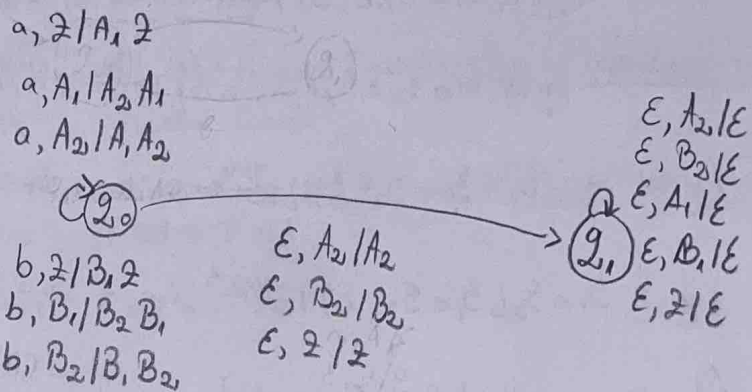 a, Z/A₁ Z
a, A₁/A₂ A₁
a, A₂/A₁ A₂
q₀
b, Z/B₁ Z
b, B₁/B₂ B₁
b, B₂/B₁ B₂
ε, A₂/A₂
ε, B₂/B₂
ε, Z/Z
q₁
ε, A₂/ε
ε, B₂/ε
ε, A₁/ε
ε, B₁/ε
ε, Z/ε